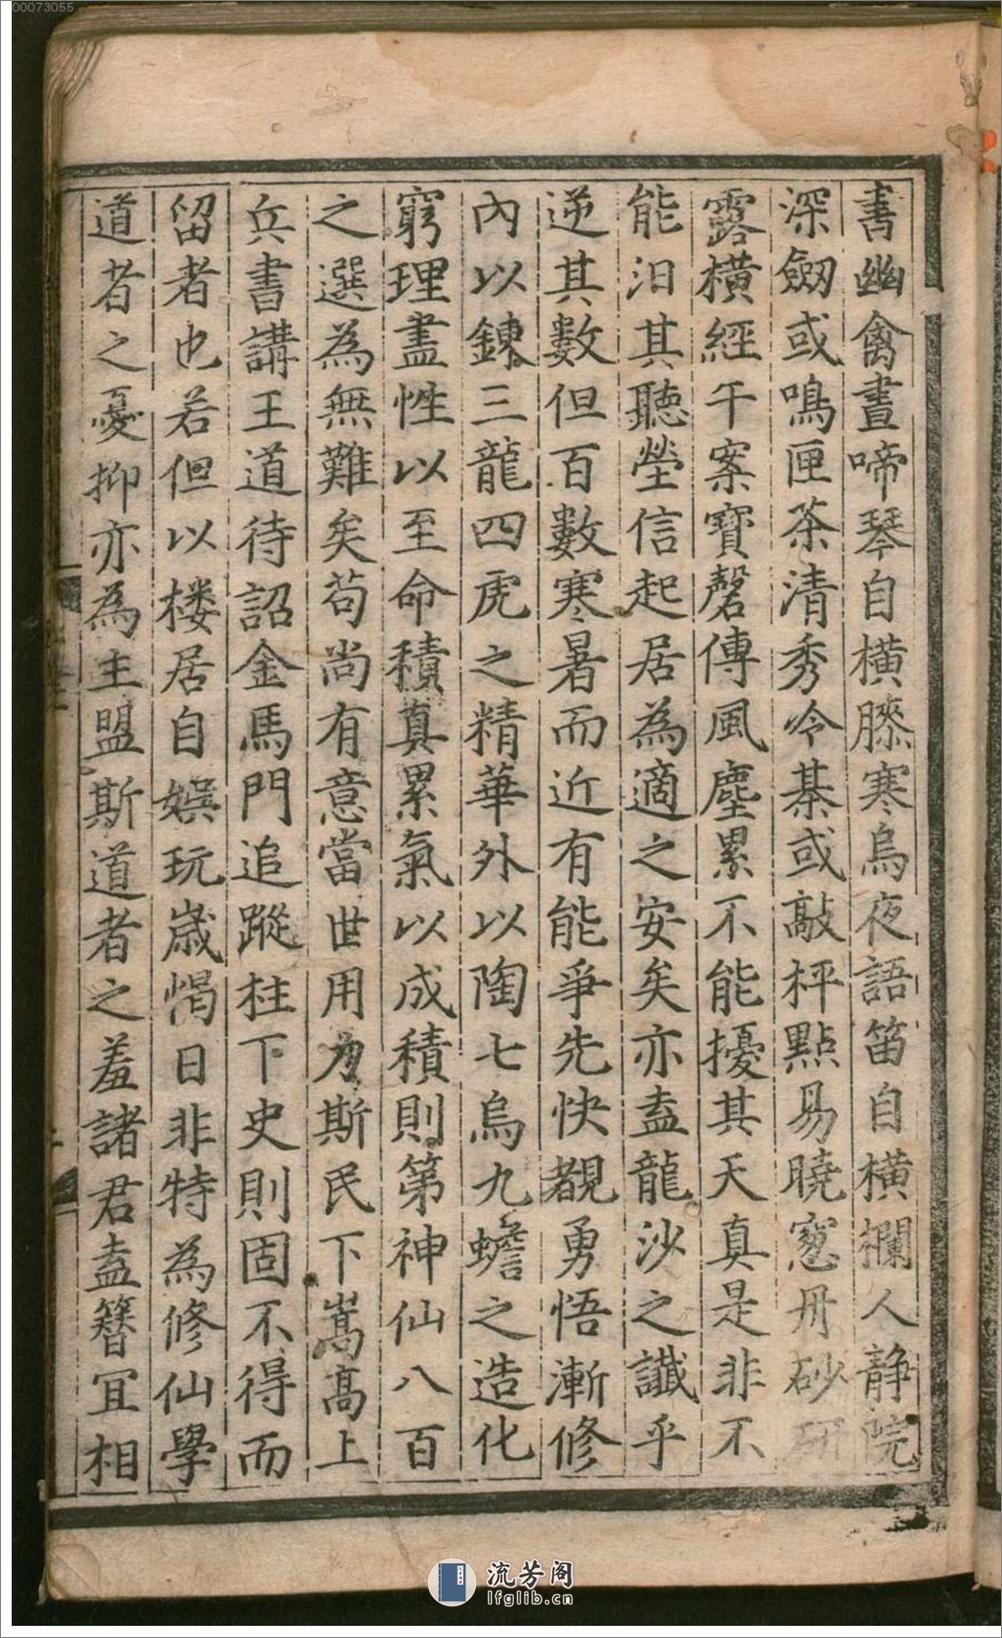 00073055
書幽禽晝啼琴自橫膝寒烏夜語笛自橫欄人静院
深劔或鳴匣茶清秀吟棊或敲枰點易曉窓丹砂研
露橫經午案寶磬傳風塵累不能擾其天真是非不
能汨其聽塋信起居為適之安矣亦盍龍沙之讖乎
逆其數但百數寒暑而近有能爭先快覩勇悟漸修
內以鍊三龍四虎之精華外以陶七烏九蟾之造化
窮理盡性以至命積真累氣以成積則第神仙八百
之選為無難矣苟尚有意當世用力斯民下嵩高上
兵書講王道待詔金馬門追蹤柱下史則固不得而
留者也若但以楼居自娯玩嵗愒日非特為修仙學
道者之憂抑亦為主盟斯道者之羞諸君盍簪冝相
流芳阁
lfglib.cn